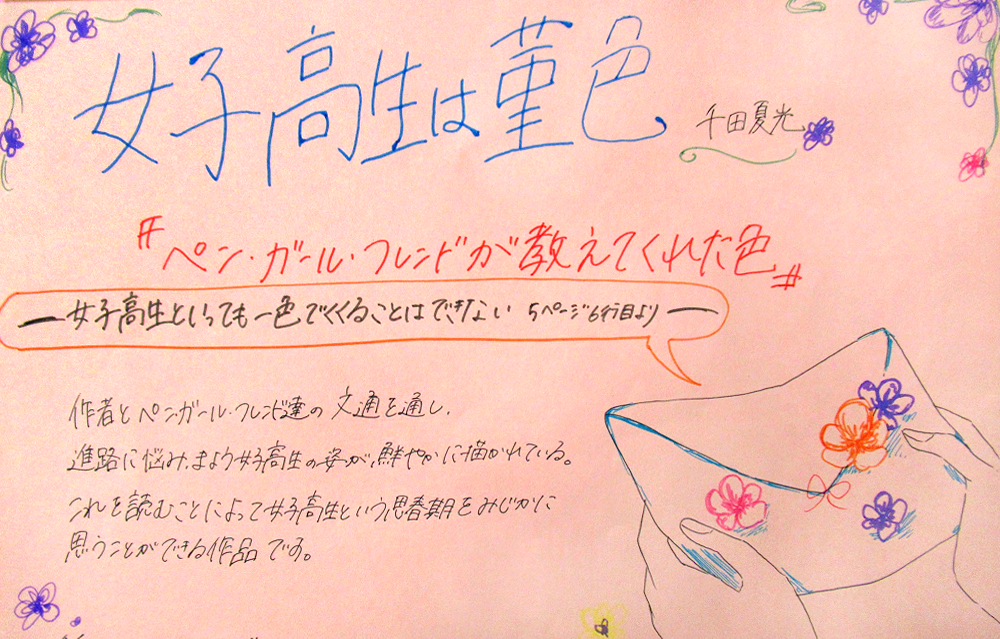 女子高生は菫色
千田夏光
"ペン・ガール・フレンドが教えてくれた色"
― 女子高生といっても一色でくくることはできない 5ページ6行目より ―
作者とペンガール・フレンド達の文通を通し、
進路に悩み、まよう女子高生の姿が、鮮やかに描かれている。
これを読むことによって女子高生という思春期をみじかに
思うことができる作品です。